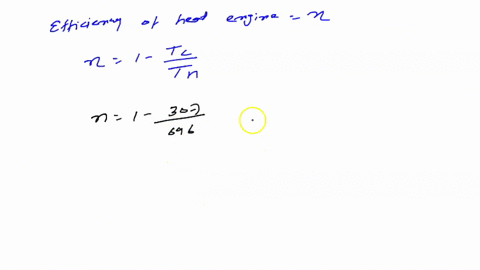 Efficiency of heat engine = n
n = 1 - Tc/Tn
n = 1 - 307/696